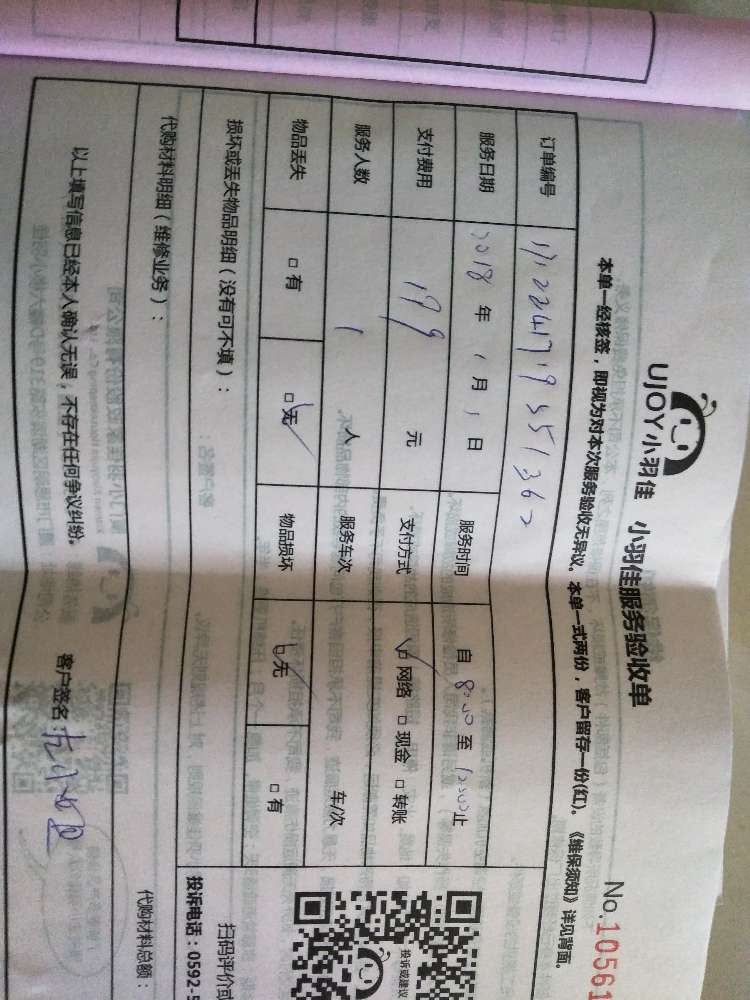 UJOY小羽佳 小羽佳服务验收单
No.10561
本单一经核签，即视为对本次服务验收无异议。本单一式两份，客户留存一份(红)。《维保须知》详见背面。
订单编号
服务日期 2018 年 1 月 1 日 服务时间 自 8:00 至 12:00 止
支付费用 199 元 支付方式 ☑ 网络 □ 现金 □ 转账
服务人数 1 人 服务车次 车/次
物品丢失 □ 有 ☑ 无 物品损坏 ☑ 无 □ 有
损坏或丢失物品明细（没有可不填）：
扫码评价或
投诉或建议
投诉电话：0592-5
代购材料明细（维修业务）：
代购材料总额：
以上填写信息已经本人确认无误，不存在任何争议纠纷。 客户签名